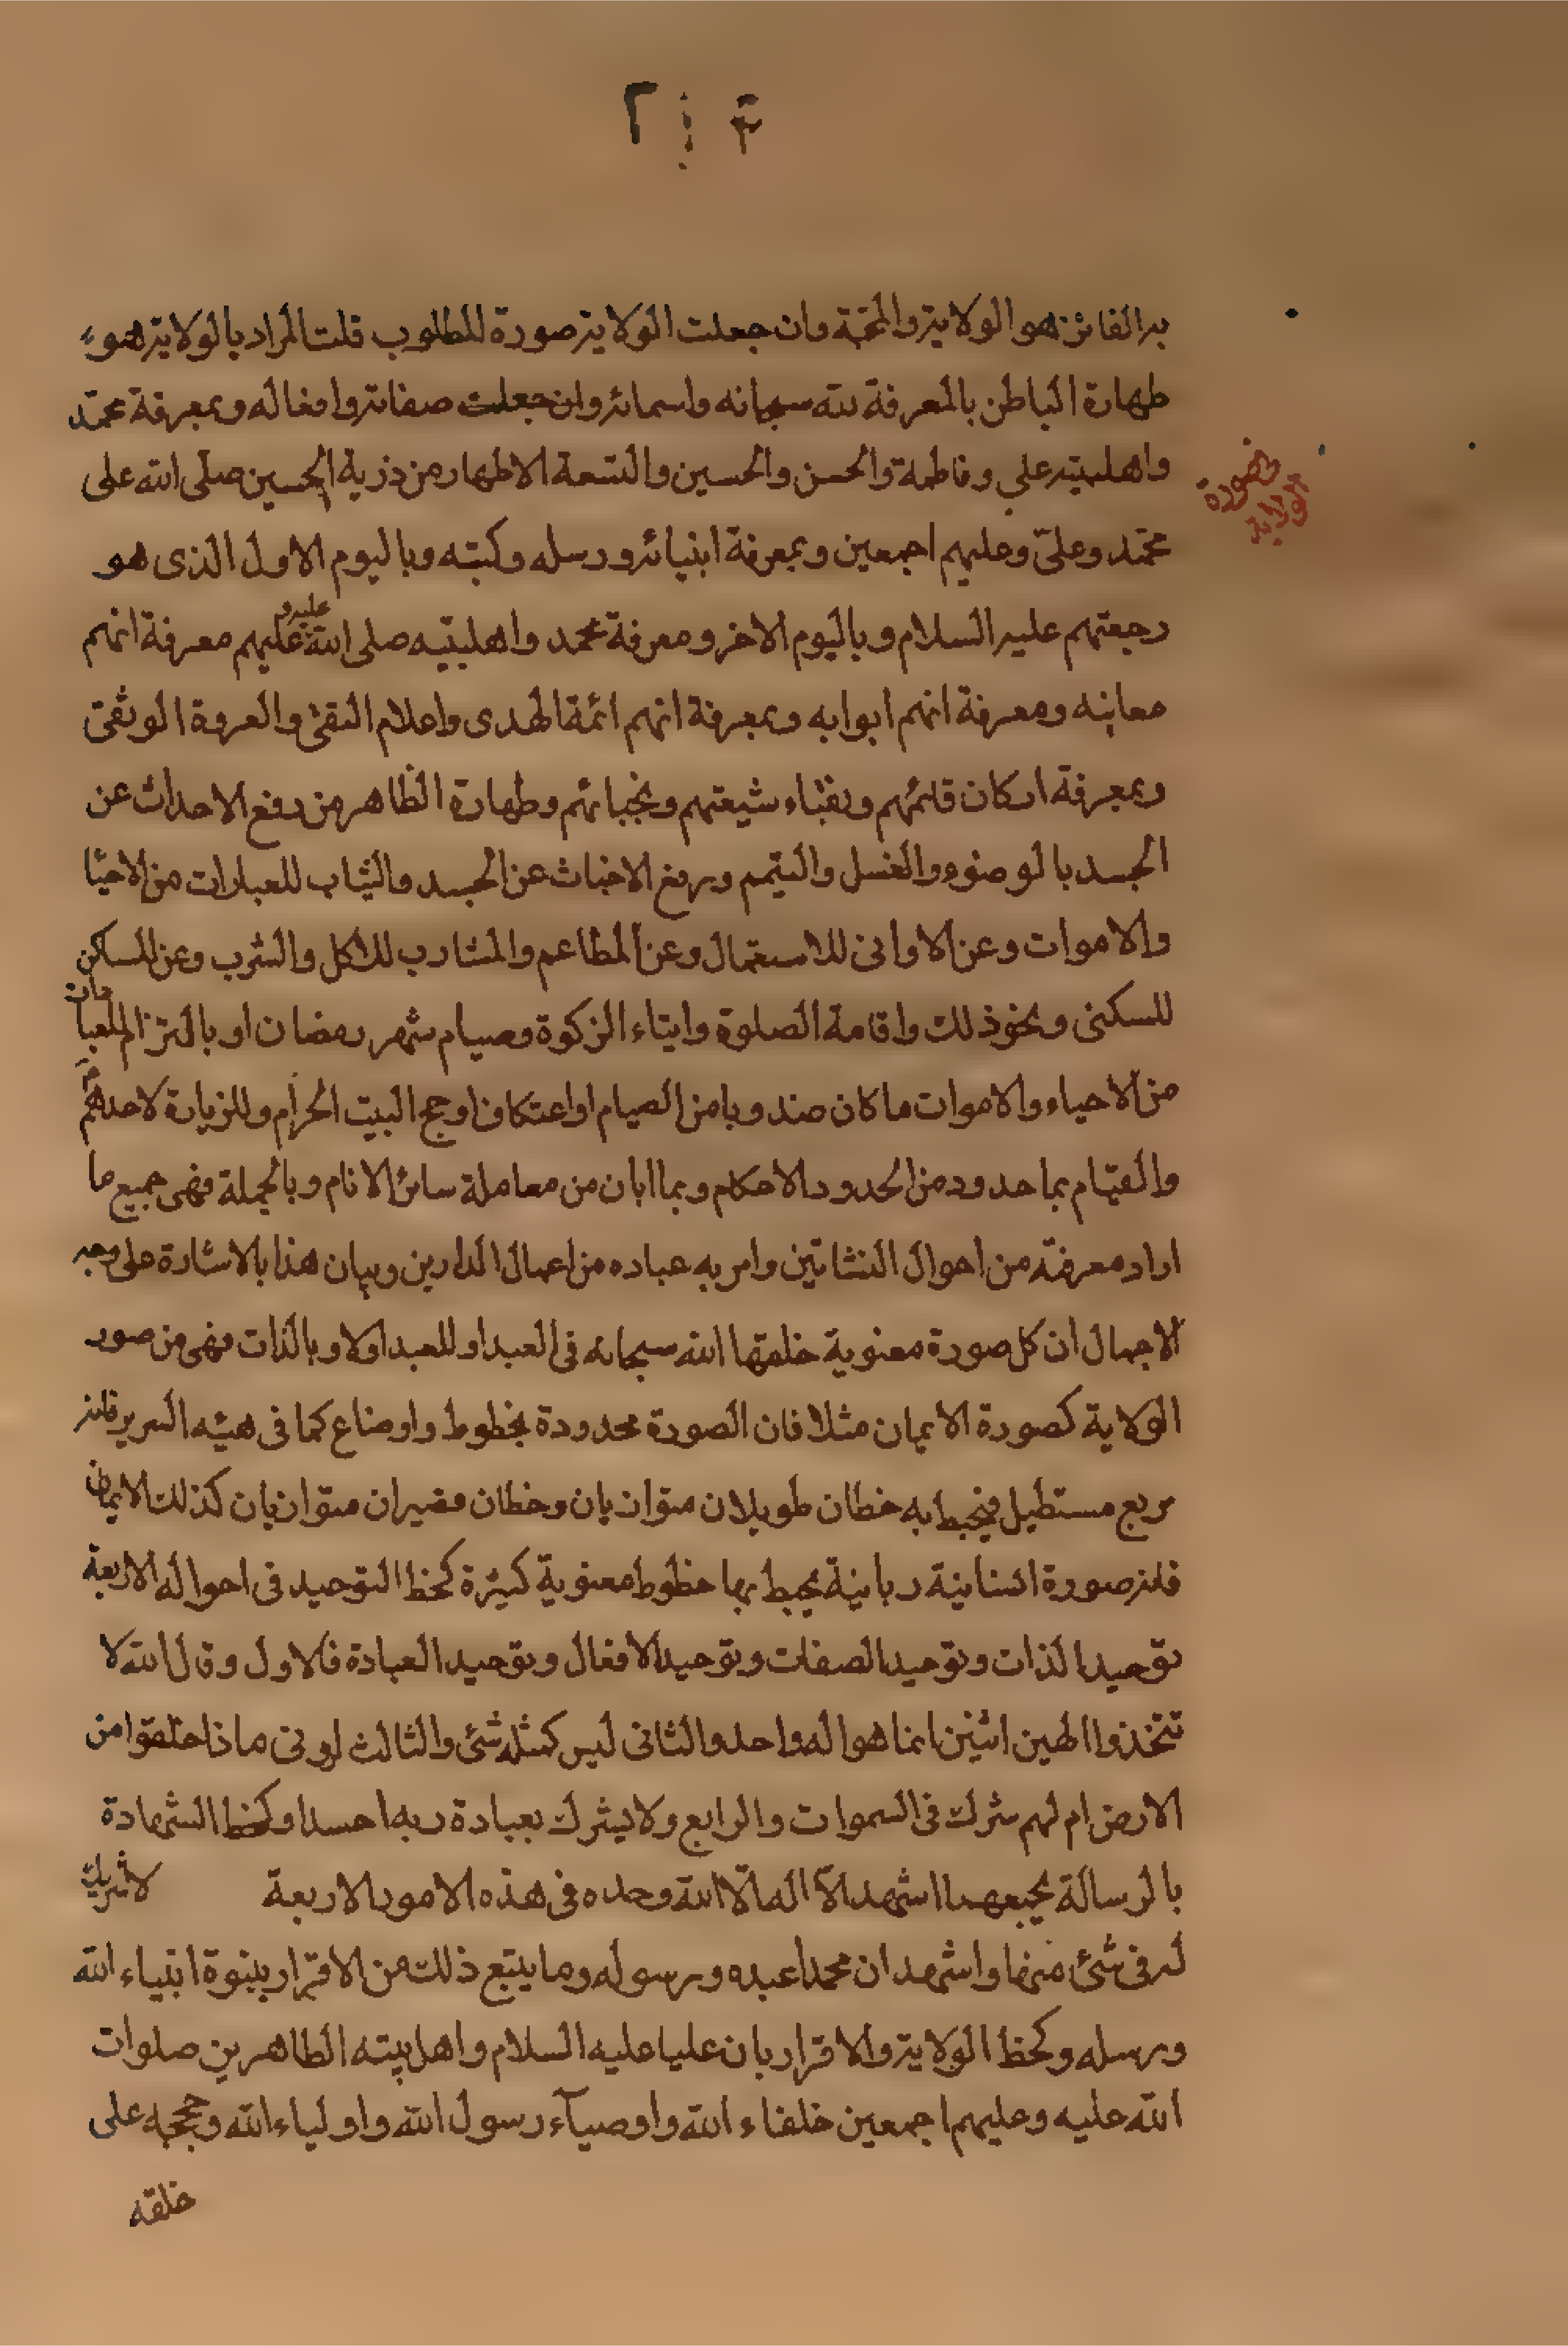 به الفائزهو الولاية والمحبة وان جعلت الولاية صورة للمطلوب قلت المراد بالولاية هو
طهارة الباطن بالمعرفة لله سبحانه واسمائه وان جعلت صفاته وافعاله وبمعرفة محمد
واهلبيته علي وفاطمة والحسن والحسين والتسعة الاطهار من ذرية الحسين صلى الله على
صورة الولاية
محمد وعلىّ وعليهم اجمعين وبمعرفة انبيائه ورسله وكتبه وباليوم الاول الذى هو
رجعتهم عليه السلام وباليوم الاخر ومعرفة محمد واهلبيته صلى الله عليه و عليهم معرفة انهم
معانيه ومعرفة انهم ابوابه وبمعرفة انهم ائمة الهدى واعلام التقى والعروة الوثقى
وبمعرفة اركان قائمهم ونقباء شيعتهم ونجبائهم وطهارة الظاهر من رفع الاحداث عن
الجسد بالوضوء والغسل والتيمم وبرفع الاخباث عن الجسد والثياب للعبادات من الاحيا
والاموات وعن الاوانى للاستعمال وعن المطاعم والمشارب للاكل والشرب وعن المساكن
للسكنى ونحو ذلك واقامة الصلوة وايتاء الزكوة وصيام شهر رمضان او بالتزام للعبادات
من الاحياء والاموات ما كان مندوبا من الصيام او اعتكاف او حج البيت الحرام وللزيارة لاحدهم
والقيام بما حدود من الحدود الاحكام وبما ابان من معاملة سائر الانام وبالجملة فهى جميع ما
اراد معرفته من احوال النشاتين وامر به عباده من اعمال الدارين وبيان هذا بالاشارة على وجه
الاجمال ان كل صورة معنوية خلقها الله سبحانه فى العبد او للعبد اولا وبالذات فهى من صور
الولاية كصورة الايمان مثلا فان الصورة محدودة بخطوط واوضاع كما فى هيئه السرير فانه
مربع مستطيل فيحيط به خطان طويلان متوازيان وخطان قصيران متوازيان كذلك الايمان
فانه صورة انسانية ربانية يحيط بها خطوط معنوية كثيرة كخط التوحيد فى احواله الاربعة
توحيد الذات وتوحيد الصفات وتوحيد الافعال وتوحيد العبادة فالاول وقال الله لا
تتخذوا الهين اثنين انما هو اله واحد والثانى ليس كمثله شئ والثالث ارونى ماذا خلقوا من
الارض ام لهم شرك فى السموات والرابع ولا يشرك بعبادة ربه احدا وكخط الشهادة
بالرسالة يجمعهما اشهد الا اله الا الله وحده فى هذه الامور الاربعة لا شريك
له فى شئ منها واشهد ان محمدا عبده ورسوله وما يتبع ذلك من الاقرار بنبوة انبياء الله
ورسله وكخط الولاية والاقرار بان عليا عليه السلام واهل بيته الطاهرين صلوات
الله عليه وعليهم اجمعين خلفاء الله واوصيآء رسول الله واولياء الله وحججه على
خلقه